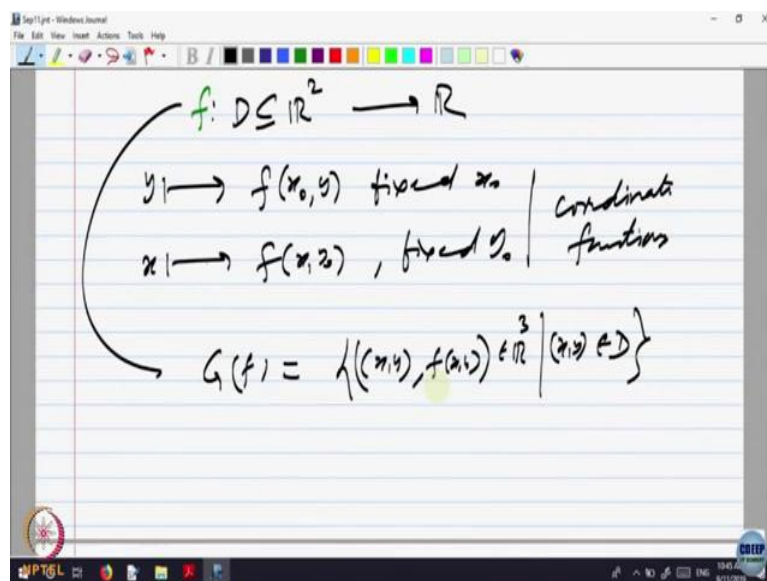 Sep11.jnt - Windows Journal
File Edit View Insert Actions Tools Help
B I
f: D ⊆ ℝ² ⟶ ℝ
y ⟼ f(x₀, y) fixed x₀ | coordinate
x ⟼ f(x, y₀), fixed y₀ | functions
G(f) = {((x,y), f(x,y)) ∈ ℝ³ | (x,y) ∈ D}
NPTEL
CDEEP
ENG